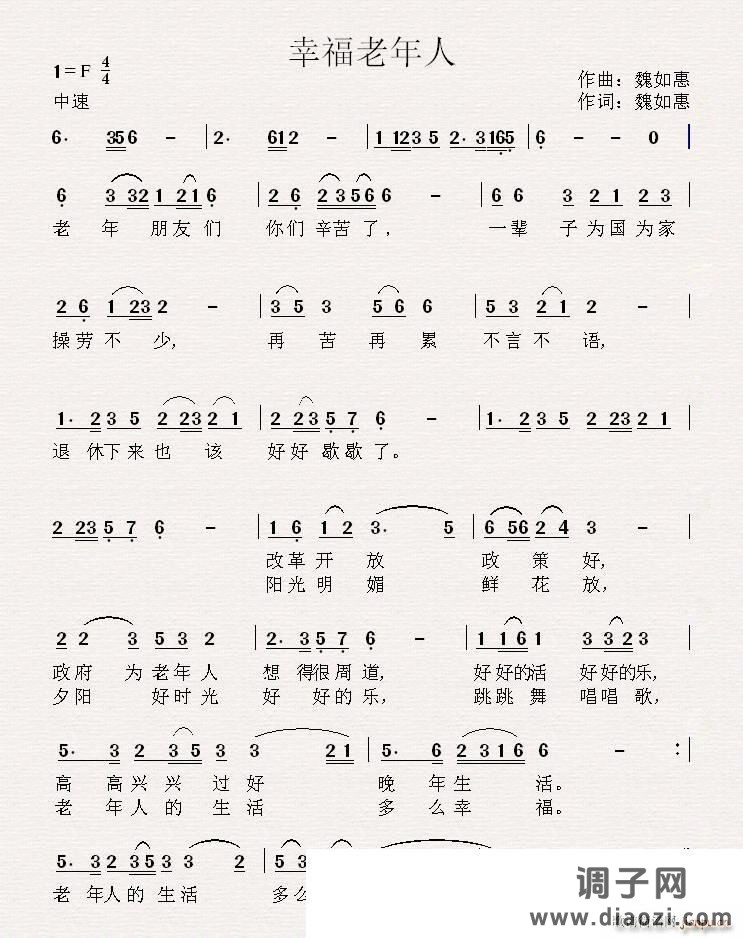 幸福老年人
1=F 4/4
作曲：魏如惠
中速
作词：魏如惠
6· 356 - | 2· 612 - | 1 123 5 2·3165 | 6 - - 0 |
6 3 32 1 21 6 | 2 6 2356 6 - | 6 6 3 2 1 2 3 |
老年朋友们 你们辛苦了， 一辈子为国为家
2 6 1 23 2 - | 3 5 3 5 6 6 | 5 3 2 1 2 - |
操劳不少， 再苦再累 不言不语，
1· 2 3 5 2 23 2 1 | 2 23 5 7 6 - | 1· 2 3 5 2 23 2 1 |
退休下来也该 好好歇歇了。
2 23 5 7 6 - | 1 6 1 2 3· 5 | 6 56 2 4 3 - |
改革开放 政策好，
阳光明媚 鲜花放，
2 2 3 5 3 2 | 2· 3 5 7 6 - | 1 1 6 1 3 3 2 3 |
政府为老年人 想得很周道， 好好的活 好好的乐，
夕阳好时光 好好的乐， 跳跳舞 唱唱歌，
5· 3 2 35 3 2 1 | 5· 6 2 316 6 - :
高高兴兴过好 晚年生活。
老年人的生活 多么幸福。
5· 3 2 35 3 2 |
老年人的生活 多么
调子网
www.diaozi.com